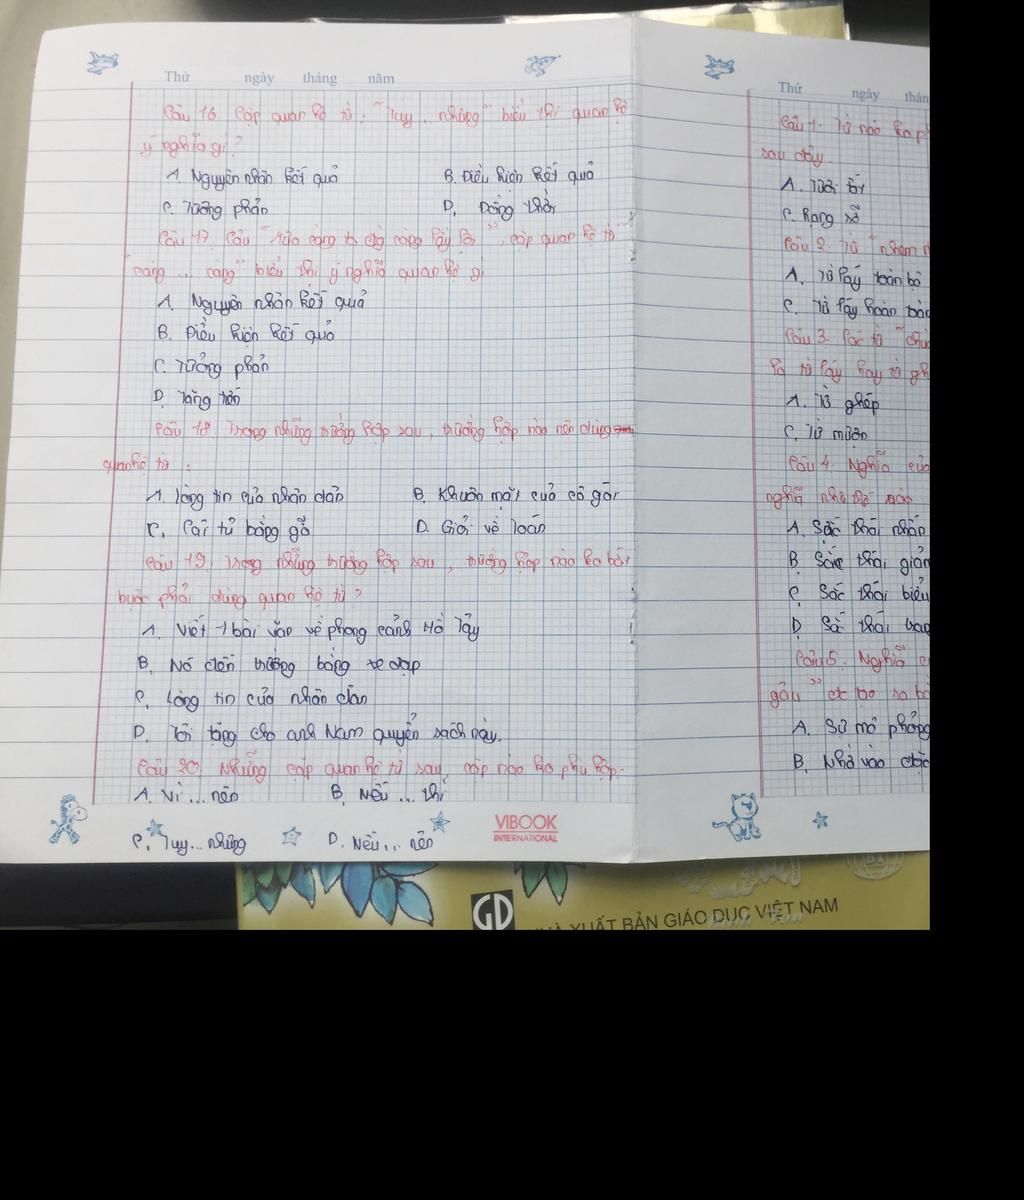 Thứ ngày tháng năm
Câu 16. Cặp quan hệ từ: "Tuy... nhưng" biểu thị quan hệ
ý nghĩa gì?
A. Nguyên nhân kết quả B. Điều kiện kết quả
C. Tương phản D. Đồng thời
Câu 17. Câu " càng càng lầy lội", cặp quan hệ từ
"càng... càng" biểu thị ý nghĩa quan hệ gì
A. Nguyên nhân kết quả
B. Điều kiện kết quả
C. Tương phản
D. Tăng tiến
Câu 18. Trong những trường hợp sau, trường hợp nào nên dùng
quan hệ từ:
A. lòng tin của nhân dân B. Khuôn mặt của cô gái
C. Cái tủ bằng gỗ D. Giỏi về Toán
Câu 19. Trong những trường hợp sau, trường hợp nào ko bắt
buộc phải dùng quan hệ từ?
A. Viết 1 bài văn về phong cảnh Hồ Tây
B. Nó đến trường bằng xe đạp
C. Lòng tin của nhân dân
D. Tôi tặng cho anh Nam quyển sách này.
Câu 20. Những cặp quan hệ từ sau, cặp nào ko phù hợp.
A. Vì... nên B. Nếu... thì
C. Tuy... nhưng D. Nếu... nên
VIBOOK
INTERNATIONAL
Thứ ngày thán
Câu 1. Từ nào ko p
sau đây.
A. Tươi tốt
C. Rạng rỡ
Câu 2. Từ "nham n
A. Từ láy toàn bộ
C. Từ láy hoàn toàn
Câu 3. Các từ "
là từ láy hay từ gh
A. Từ ghép
C. Từ mượn
Câu 4. Nghĩa của
nghĩa như thế nào
A. Sắc thái nhấn
B. Sắc thái giảm
C. Sắc thái biểu
D. Sắ thái
Câu 5. Nghĩa c
gâu" đc tạo ra bở
A. Sự mô phỏng
B. Nhờ vào
GD
NHÀ XUẤT BẢN GIÁO DỤC VIỆT NAM